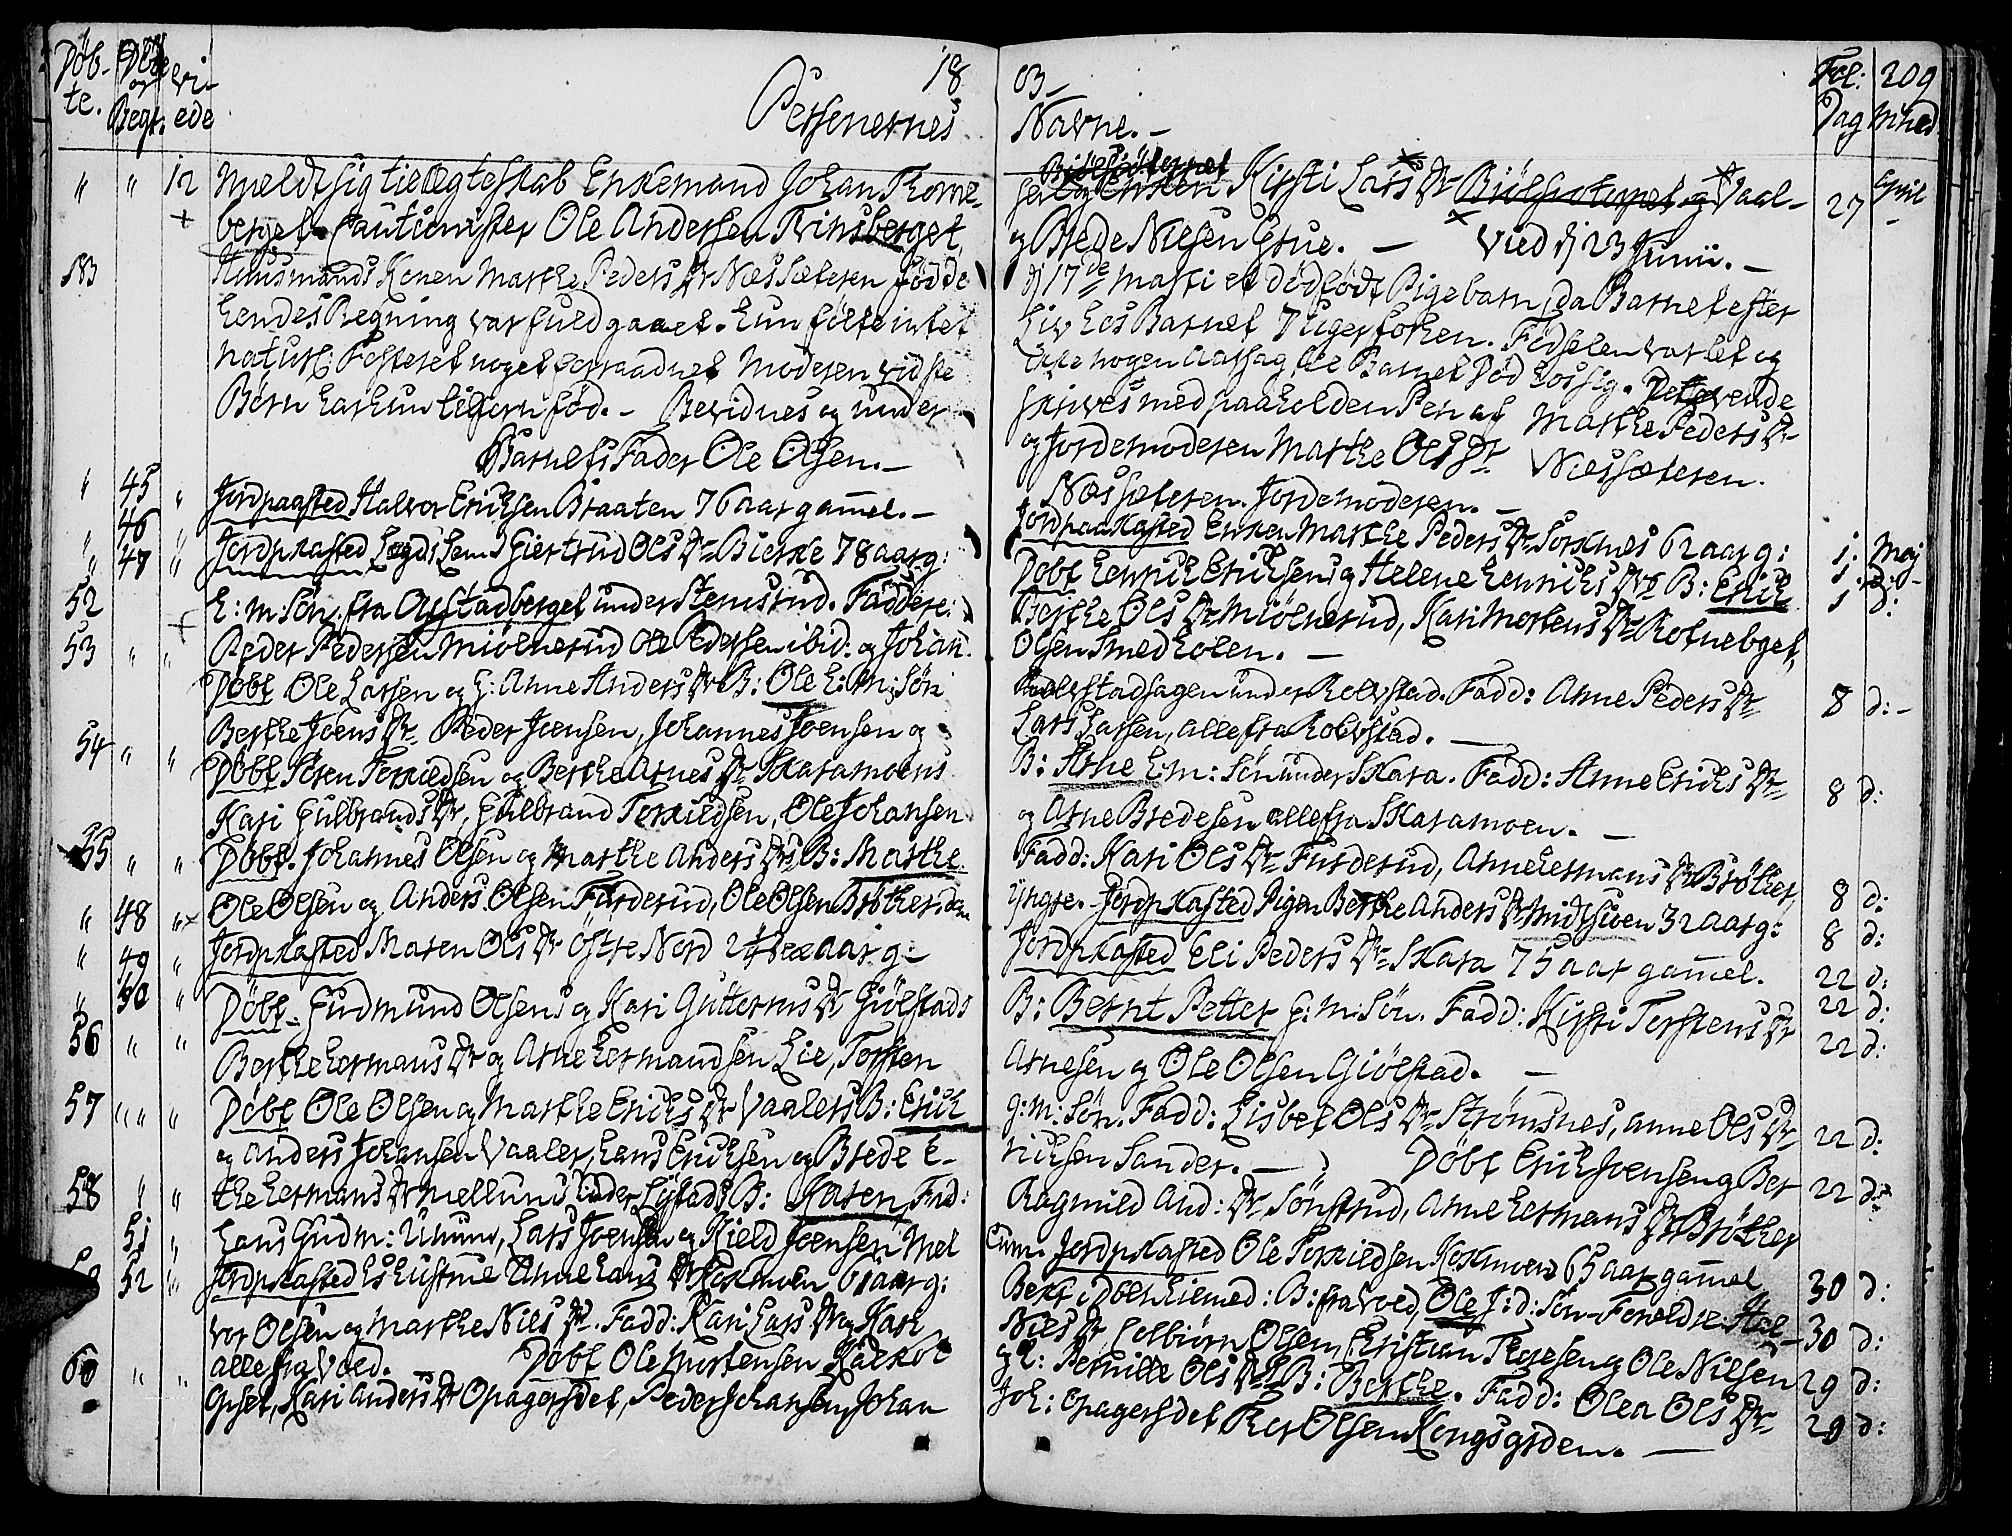 Döb-
te.
Döde
og
Begr.
Vi-
ede
18
03
Personernes
Navne.
Fol: 209
Dag Mned
" " 12 Meldt sig til Ægteskab Enkemand Johan Thorne-
sen og Enken Kirsti Lars Dr Vaal- 27 April
berget. Cautionister Ole Andersen Trinsberget
og Brede Nilsen Grue. - Vied d 23 Junii. -
Huusmands Konen Marthe Peders Dr Næssæteren fødde
d 17de Marti et dødfødt Pigebarn, da Barnet efter
hendes Regning var fuldgaaet. Hun følte intet
Liv hos Barnet 7 Uger forhen. Fødselen var let og
naturl: Fosteret noget forraadnet Moderen vidste
ikke nogen Aarsag til Barnets Død hos sig.
Børn har hun tilforn fød. - Bevidnes og under-
skrives med paaholden Pen af Marthe Peders Dr
Barnets Fader Ole Olsen. -
og Jordemoderen Marthe Ols Dr Næssæteren.
Næssæteren. Jordemoderen. -
" 45 " Jordpaakasted Halvor Erichsen Braaten 76 aar gamel. -
46 Jordpaakasted Enken Marthe Peders Dr Sorknes 62 aar g: 1. Maj
" 47 " Jordpkasted Lægds Lem Giertrud Ols Dr Bierke 78 aar g: 1. d: -
52 Döbt Henrich Erichsens og Helene Henrichs Drs B: Erich 1 d:
E: M: Søn, fra Opstadberget under Stemsrud. Faddere:
Berthe Ols Dr Miølnerud, Kari Mortens Dr Rotneberget,
53 " " Peder Pedersen Miølnerud Ole Pedersen ibid: og Johan
Olsen Smedholen. -
Döbt Ole Larsen og H: Anne Anders Dr B: Ole E: M: Søn
Rolvstadhagen under Rolvstad. Fadd: Anne Peders Dr 8 d: -
Berthe Joens Dr Peder Joensen, Johannes Joensen og
Lars Larsen, alle fra Rolvstad. -
54 " " Döbt Peren Terkildsen og Berthe Arnes Dr Skaramoens
B: Arne E: M: Søn under Skara. Fadd: Anne Erichs Dr 8 d:
Kari Gulbrands Dr, Gulbrand Terkildsen, Ole Johansen
og Arne Bredesen alle fra Skaramoen. -
55 " " Döbt. Johannes Olsen og Marthe Anders Drs B: Marthe
Fadd: Kari Ols Dr Furderud, Anne Hermans Dr Bröther, 8 d:
Ole Olsen og Anders Olsen Furderud, Ole Olsen Bröther, den
" 48 " yngre. Jordpkasted Pigen Berthe Anders Dr Midtskoen 32 aar g: 8 d:
" 49 " Jordpkasted Maren Ols Dr Östre Nord 2 aar g -
" 50 " Jordpkasted Eli Peders Dr Skara 75 aar gamel. 22 d:
Döbt - Gudmund Olsens og Kari Guttorms Dr Giølstads
B: Bernt Petter E: M: Søn. Fadd: Kirsti Torstens Dr 22 d:
56 " " Berthe Hermans Dr og Arne Hermandsen Lie, Torsten
Arnesen og Ole Olsen Giølstad. - 22 d:
57 " " " Döbt Ole Olsen og Marthe Erichs Dr Vaalers B: Erich
g: M: Søn. Fadd: Lisbet Ols Dr Strömsnes, Anne Ols Dr 22 d:
og Anders Johansen Vaaler, Hans Erichsen og Brede E-
richsen Sander. - Döbt Erich Joensen og Ber
58 " " the Hermans Dr Mellum under Lystads B: Karen, Fad:
Ragnild And: Dr Sönsterud, Anne Hermans Dr Bröther 22 d:
Hans Gudm: Ulvim, Lars Joensen og Kield Joensen Mel
51 " lum. Jordpkasted Ole Terkildsen Kokmoen 65 aar gamel 30 d:
52 " Jordpkasted Hans Dr Kokmoen 61 aar g:
B: fra Vold, Ole J: d: Søn - Foreldre Hal- 30 d:
vor Olsen og Marthe Niels Dr. Fadd: Kari Lars Dr og Kari
Niels Dr Colbiörn Olsen, Christian Thoresen og Ole Nilsen
alle fra Vold. - Döbt Ole Mortensen Kalkol
60 " " og H: Pernille Ols Drs B: Berthe. Fadd: Olea Ols Dr 29 d:
Kari Anders Dr Opagersdel, Peder Johansen, Johan
Joh: Opagersdel Thor Olsen Kongsgrden. - 29 d: